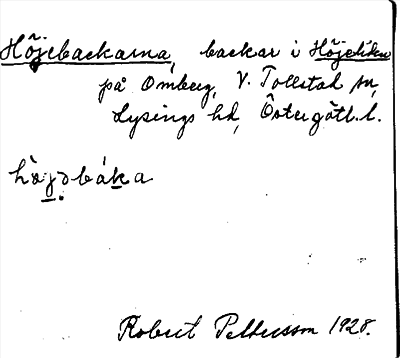 Höjebackarna, backar i Höjeliden
på Omberg, V. Tollstad sn,
Lysings hd, Östergötl. l.
hö̀jəbáka
Robert Pettersson 1928.